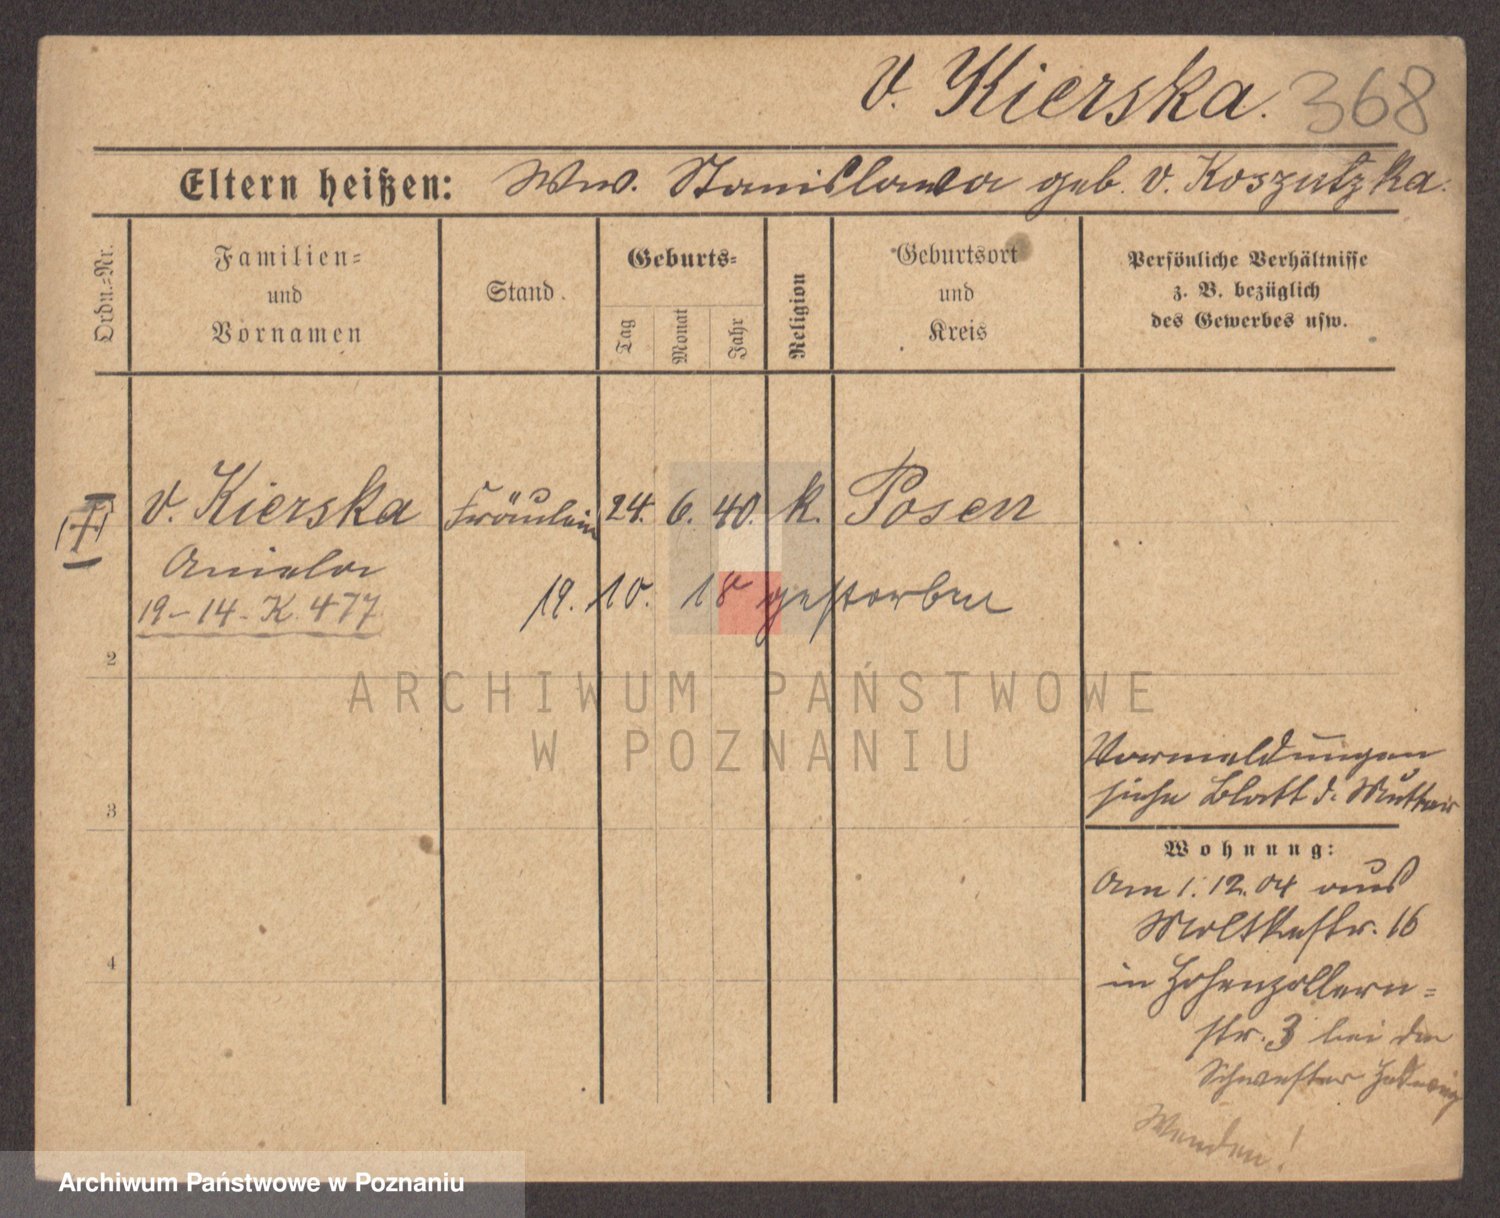 v. Kierska. 368
Eltern heißen: Ww. Stanislawa geb. v. Koszutzka.
Ordn.-Nr.
Familien-
und
Vornamen
Stand.
Geburts-
Tag
Monat
Jahr
Religion
Geburtsort
und
Kreis
Persönliche Verhältnisse
z. B. bezüglich
des Gewerbes usw.
v. Kierska Fräulein 24. 6. 40. k. Posen
Aniela
19-14-K. 477
19. 10. 18 gestorben
2
3
4
ARCHIWUM PAŃSTWOWE
W POZNANIU
Vormeldungen
siehe Blatt d. Mutter
Wohnung:
Am 1. 12. 04 aus
Moltkestr. 16
in Hohenzollern-
str. 3 bei der
Schwester Hedwig
Wenden!
Archiwum Państwowe w Poznaniu